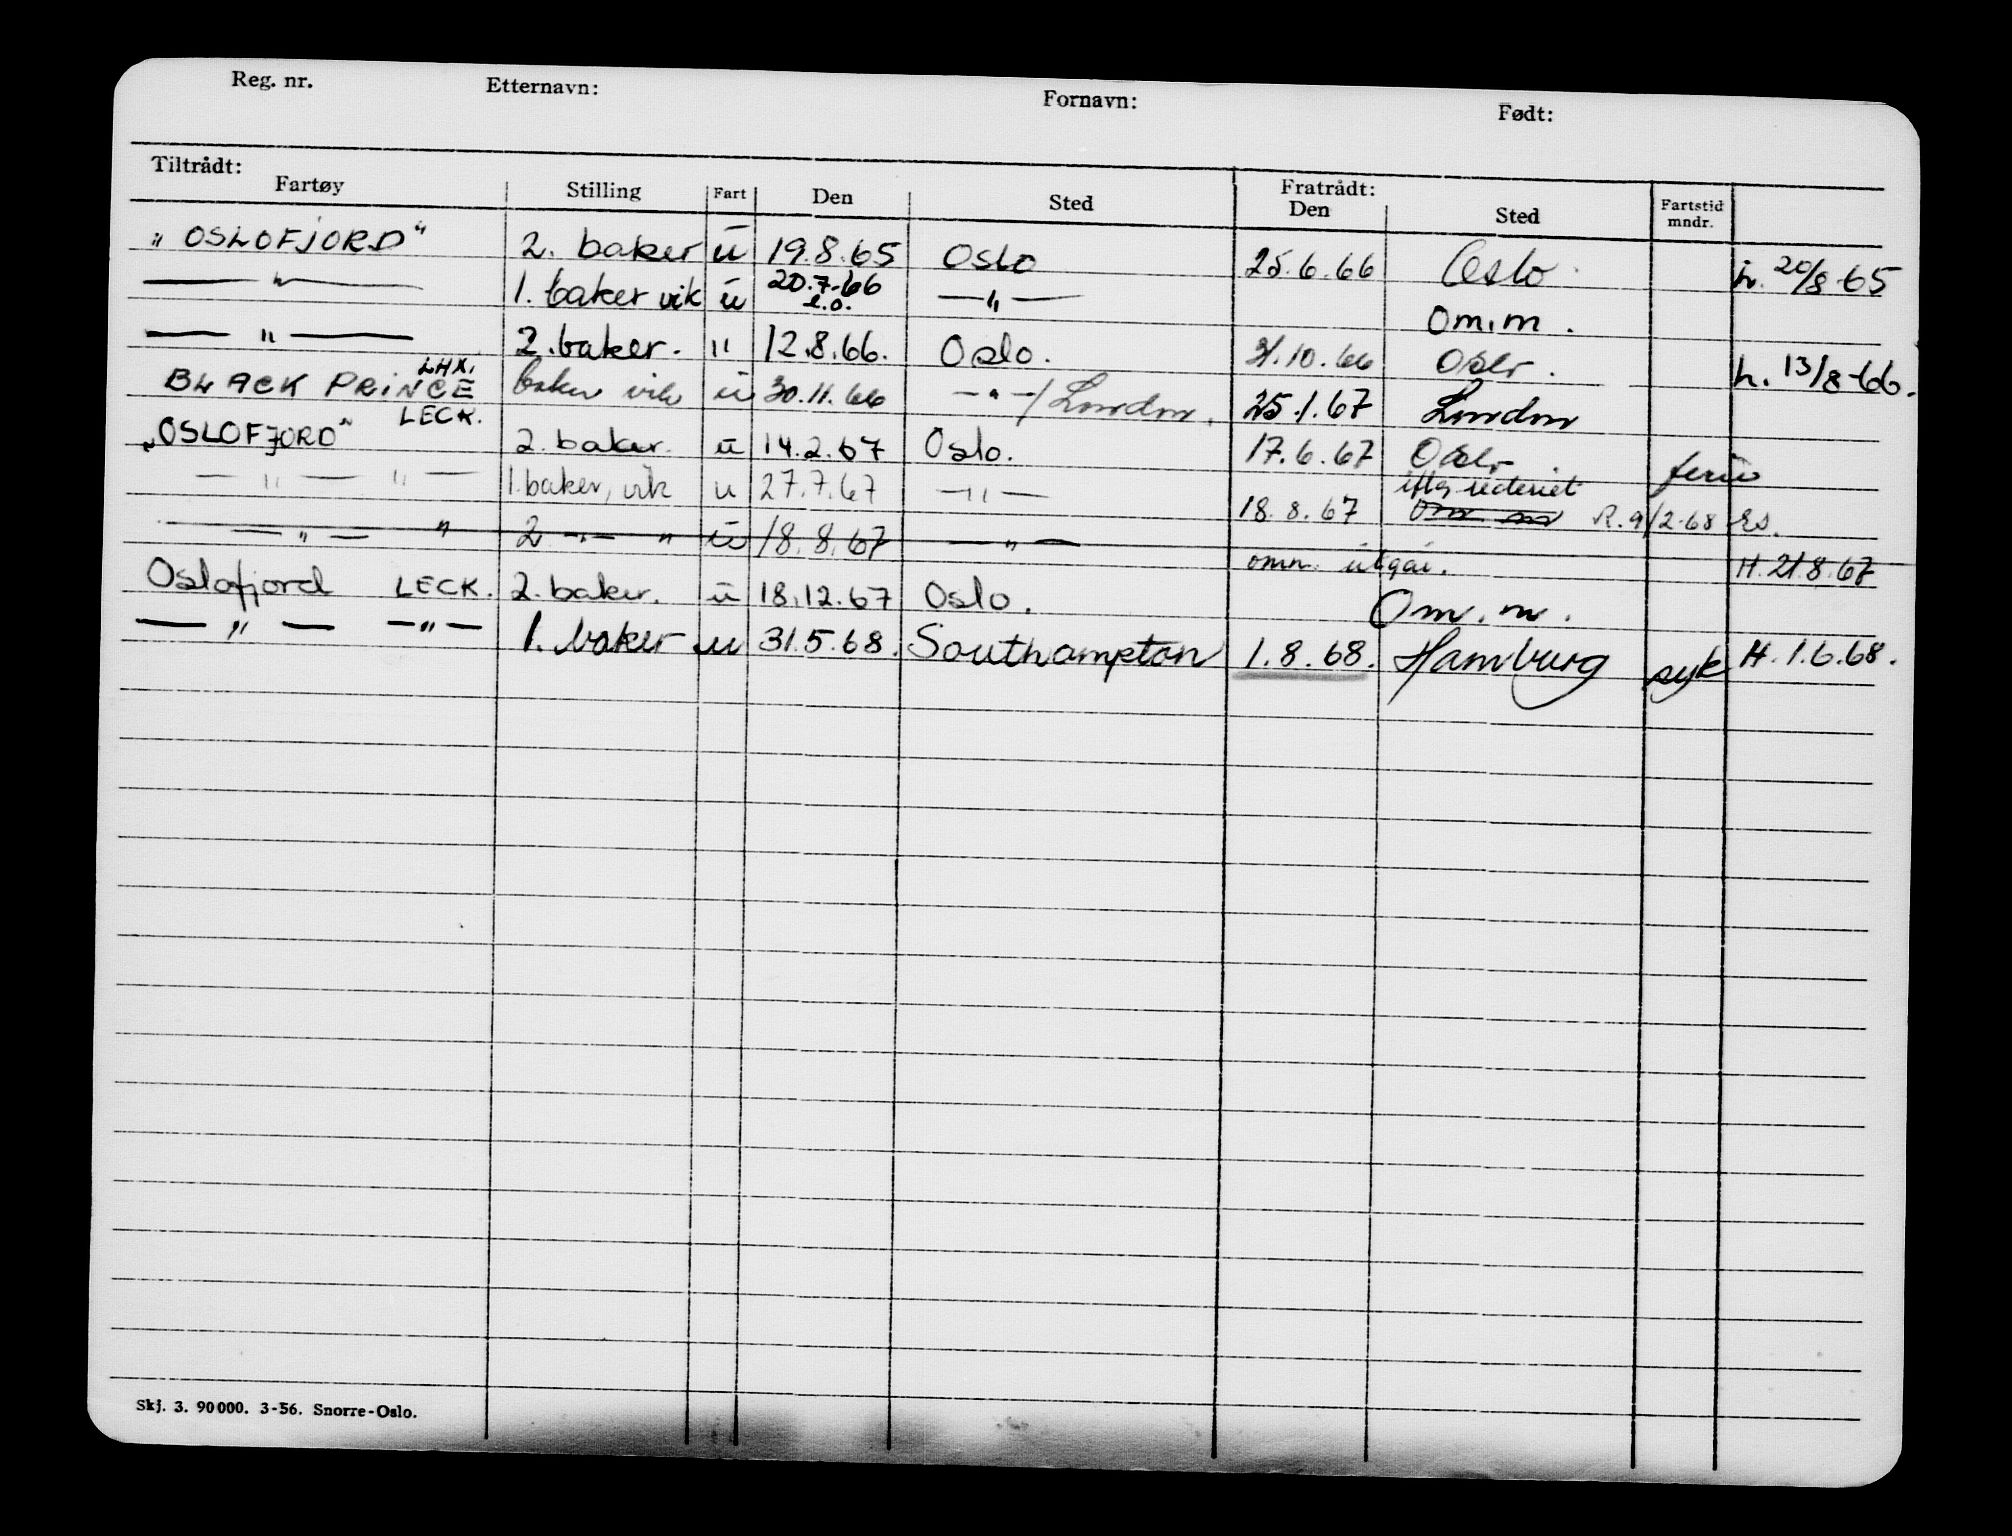 Reg. nr. Etternavn: Fornavn: Født:
Tiltrådt: Fratrådt:
Fartøy Stilling Fart Den Sted Den Sted Fartstid mndr.
„ OSLOFJORD " 2. baker ū 19.8.65 Oslo 25.6.66 Oslo h. 20/8-65
— " — 1. baker vik ū 20.7.66 — " — Om.m.
— " — 2. baker. " 12.8.66. Oslo. 31.10.66 Oslo. h. 13/8-66.
LHXI
BLACK PRINCE baker vik ū 30.11.66 — " — / London. 25.1.67 London
LECK.
„OSLOFJORD" 2. baker. ū 14.2.67 Oslo. 17.6.67 Oslo ferie
— " — " — 1. baker, vik u 27.7.67 — " — 18.8.67 efter rederiet Om m R. 9/2-68
— " — " 2 — " — " ū 18.8.67 — " — omm. utgår. H. 21.8.67
Oslofjord LECK. 2. baker. ū 18.12.67 Oslo. Om.m.
— " — — " — 1. baker u 31.5.68. Southampton 1.8.68. Hamburg syk H. 1.6.68.
Skj. 3. 90 000. 3-56. Snorre-Oslo.